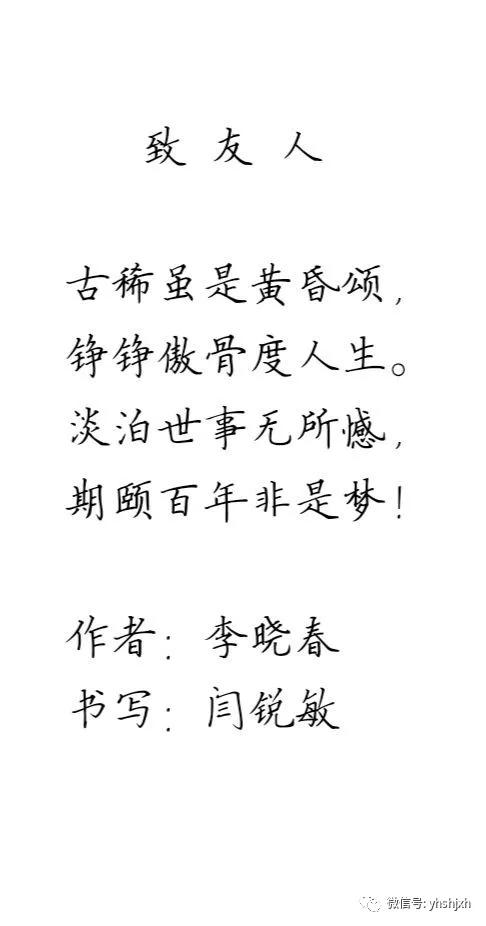 致友人
古稀虽是黄昏颂，
铮铮傲骨度人生。
淡泊世事无所憾，
期颐百年非是梦！
作者：李晓春
书写：闫锐敏
微信号: yhshjxh